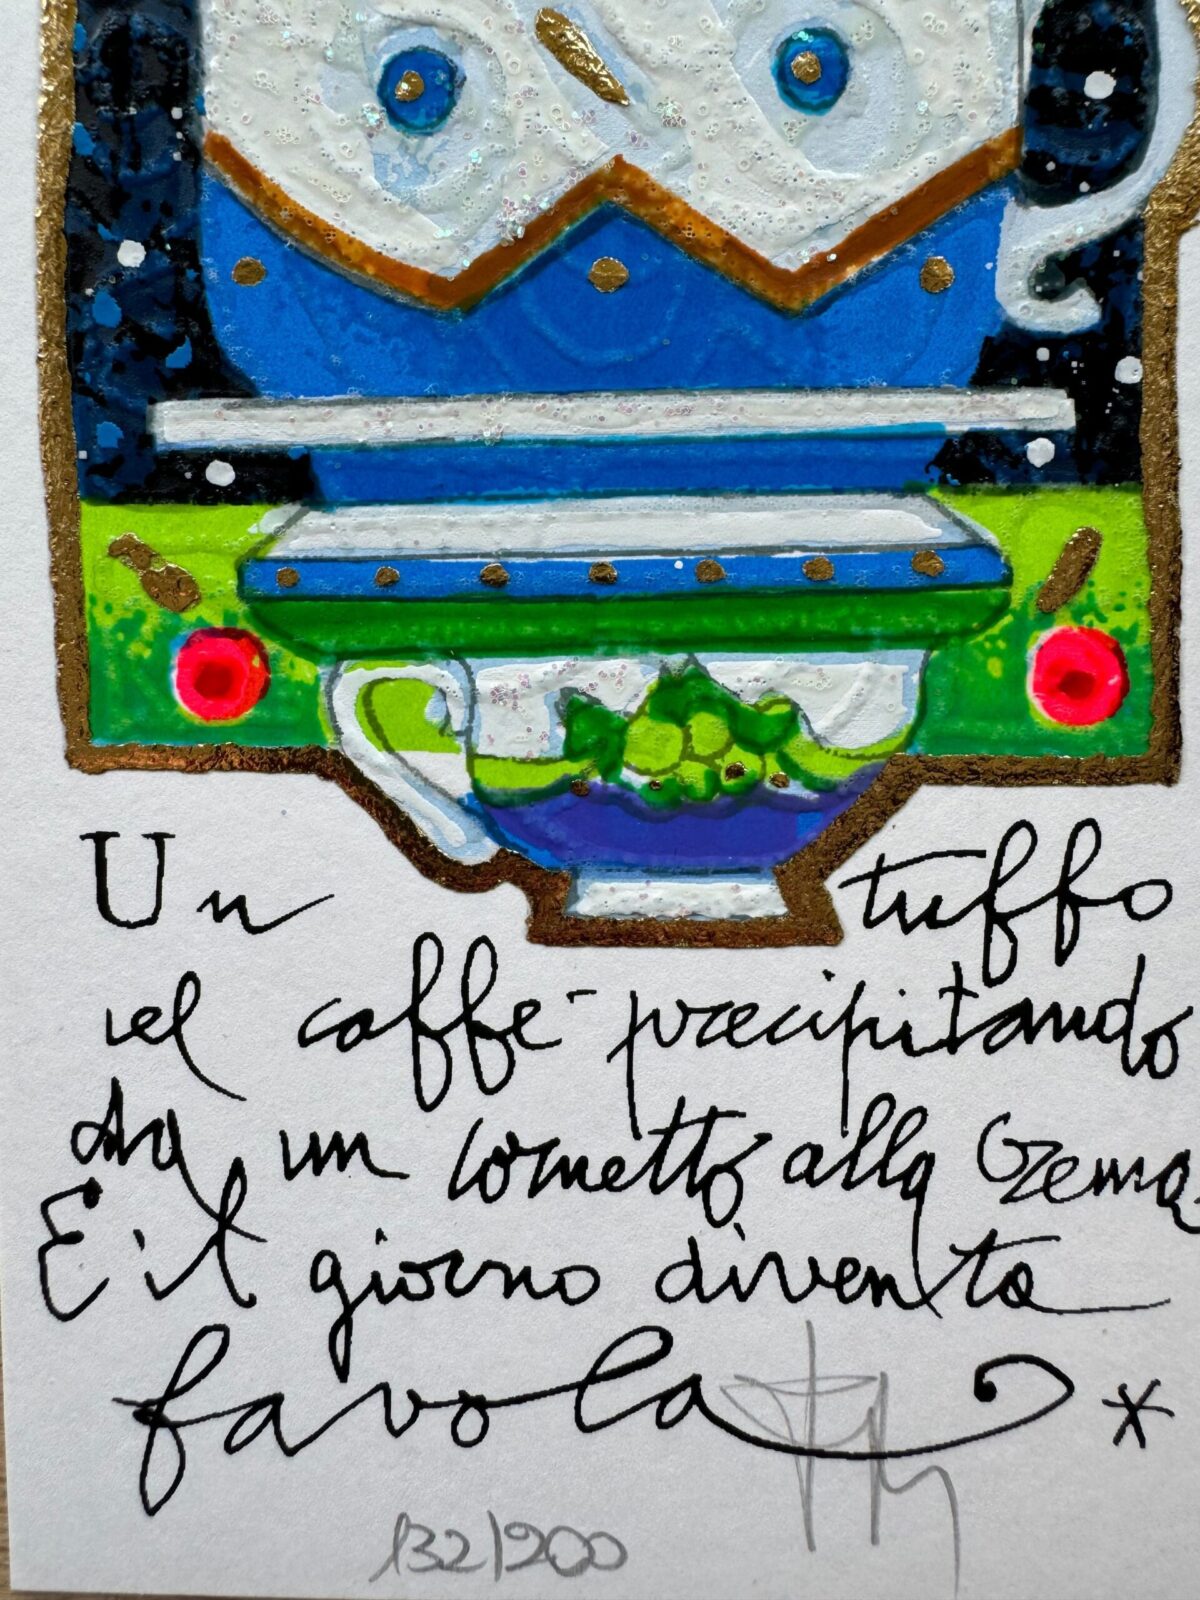 Un tuffo
nel caffè precipitando
da un cornetto alla crema
E il giorno diventa
favola *
132/200